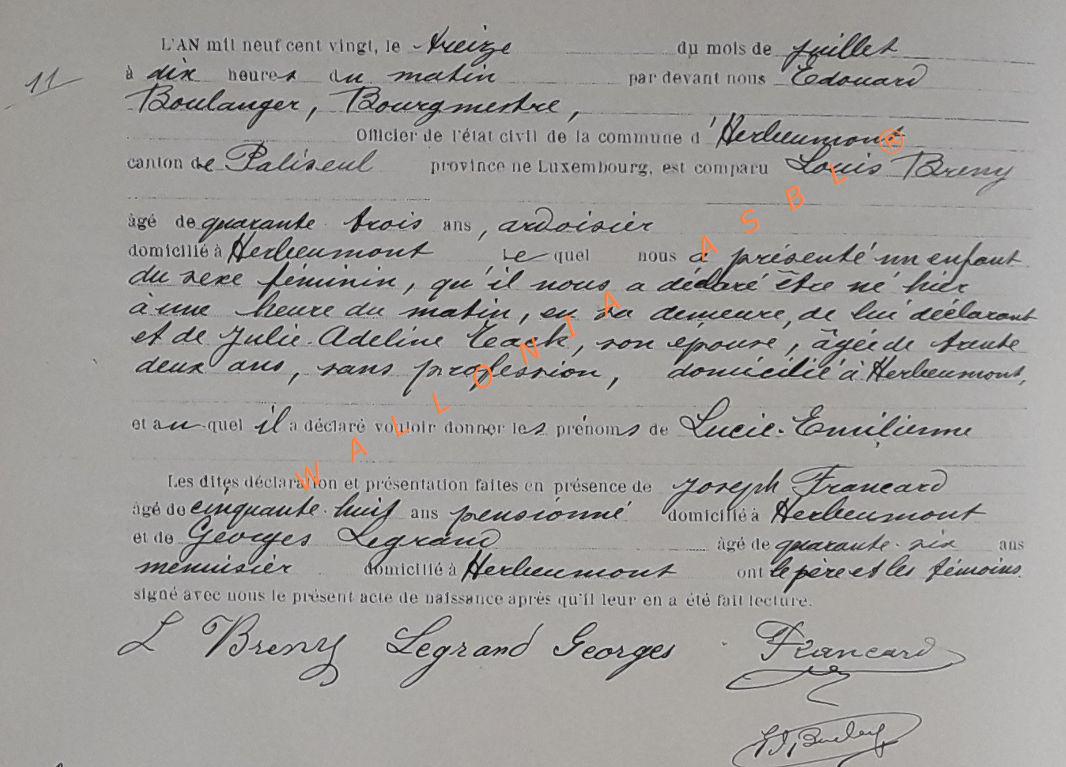 L'AN mil neuf cent vingt, le treize du mois de juillet
11
à dix heures du matin par devant nous Edouard
Boulanger, Bourgmestre,
Officier de l'état civil de la commune d'Herbeumont
canton de Paliseul province de Luxembourg, est comparu Louis Breny
âgé de quarante-trois ans, ardoisier
domicilié à Herbeumont Le quel nous a présenté un enfant
du sexe féminin, qu'il nous a déclaré être né hier
à une heure du matin, en sa demeure, de lui déclarant
et de Julie-Adeline Teack, son épouse, âgée de trente
deux ans, sans profession, domicilié à Herbeumont,
et au quel il a déclaré vouloir donner les prénoms de Lucie-Emilienne
Les dites déclaration et présentation faites en présence de Joseph Francard
âgé de cinquante-huit ans pensionné domicilié à Herbeumont
et de Georges Legrand âgé de quarante-six ans
menuisier domicilié à Herbeumont ont le père et les témoins
signé avec nous le présent acte de naissance après qu'il leur en a été fait lecture.
L Breny Legrand Georges Francard
WALLONIA ASBL ®